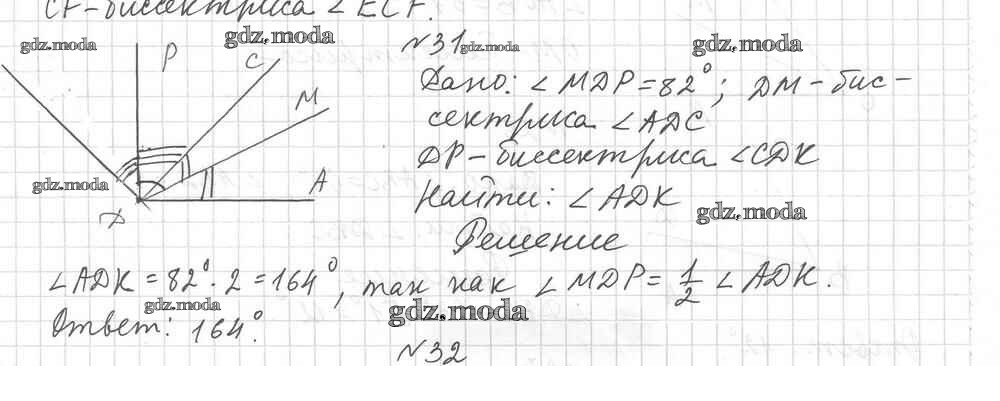 CF-биссектриса ∠ECF.
gdz.moda
P
gdz.moda
C
M
A
gdz.moda
D
N31
gdz.moda
gdz.moda
Дано: ∠MDP = 82°; DM - бис-
сектриса ∠ADC
DP - биссектриса ∠CDK
Найти: ∠ADK
gdz.moda
Решение
∠ADK = 82° · 2 = 164°, так как ∠MDP = 1/2 ∠ADK.
gdz.moda
gdz.moda
Ответ: 164°.
N32